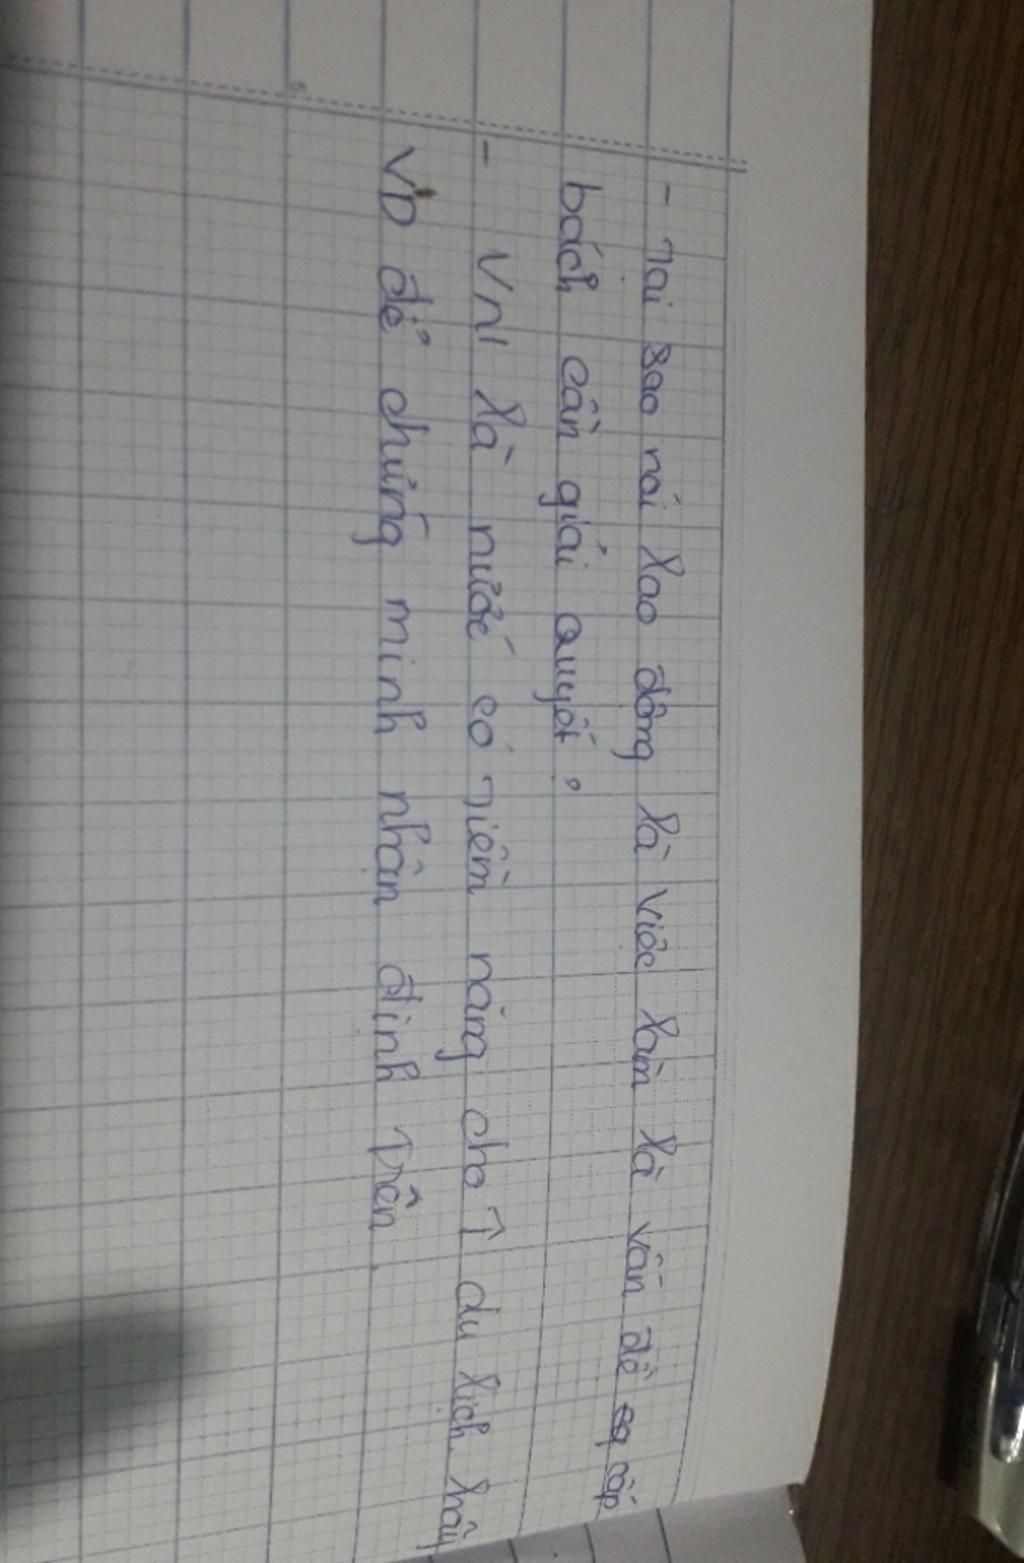 - Tại sao nói lao động là việc làm là vấn đề cấp
bách cần giải quyết?
- VN là nước có tiềm năng cho ↑ du lịch hãy
VD để chứng minh nhận định trên.